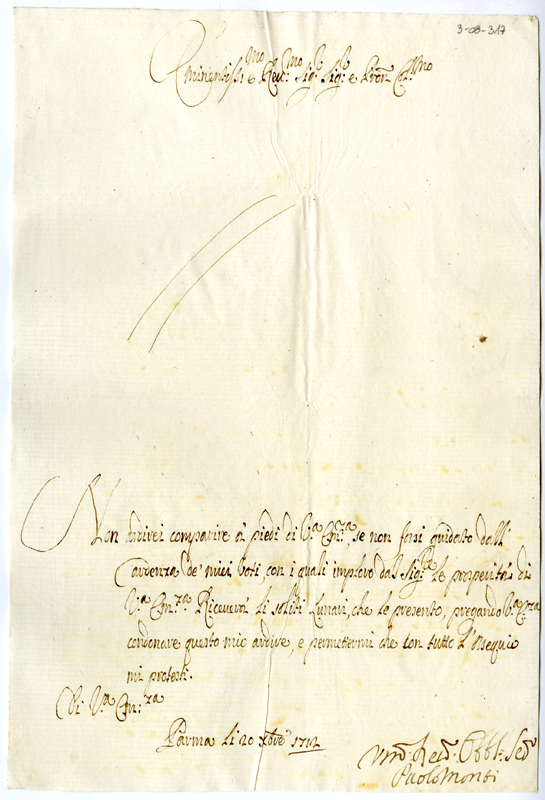 3-08-317
Eminentissi.mo e Rev.mo Sig.r Sig.r e Pron Col.mo
Non ardirei comparire a' piedi di V.a Em.za, se non fossi guidato dall'
ardenza de' miei Voti, con i quali imploro dal Sig.re le prosperita di
V.a Em.za Ricevera li soliti Lunari, che le presento, pregando V.a Em.za
condonare questo mio ardire, e permettermi che con tutto l'ossequio
mi protesti.
Di V.a Em.za
Parma li 20 Xbre 1712
Um.o Dev.o Obbl. Ser.
Paolo Monti